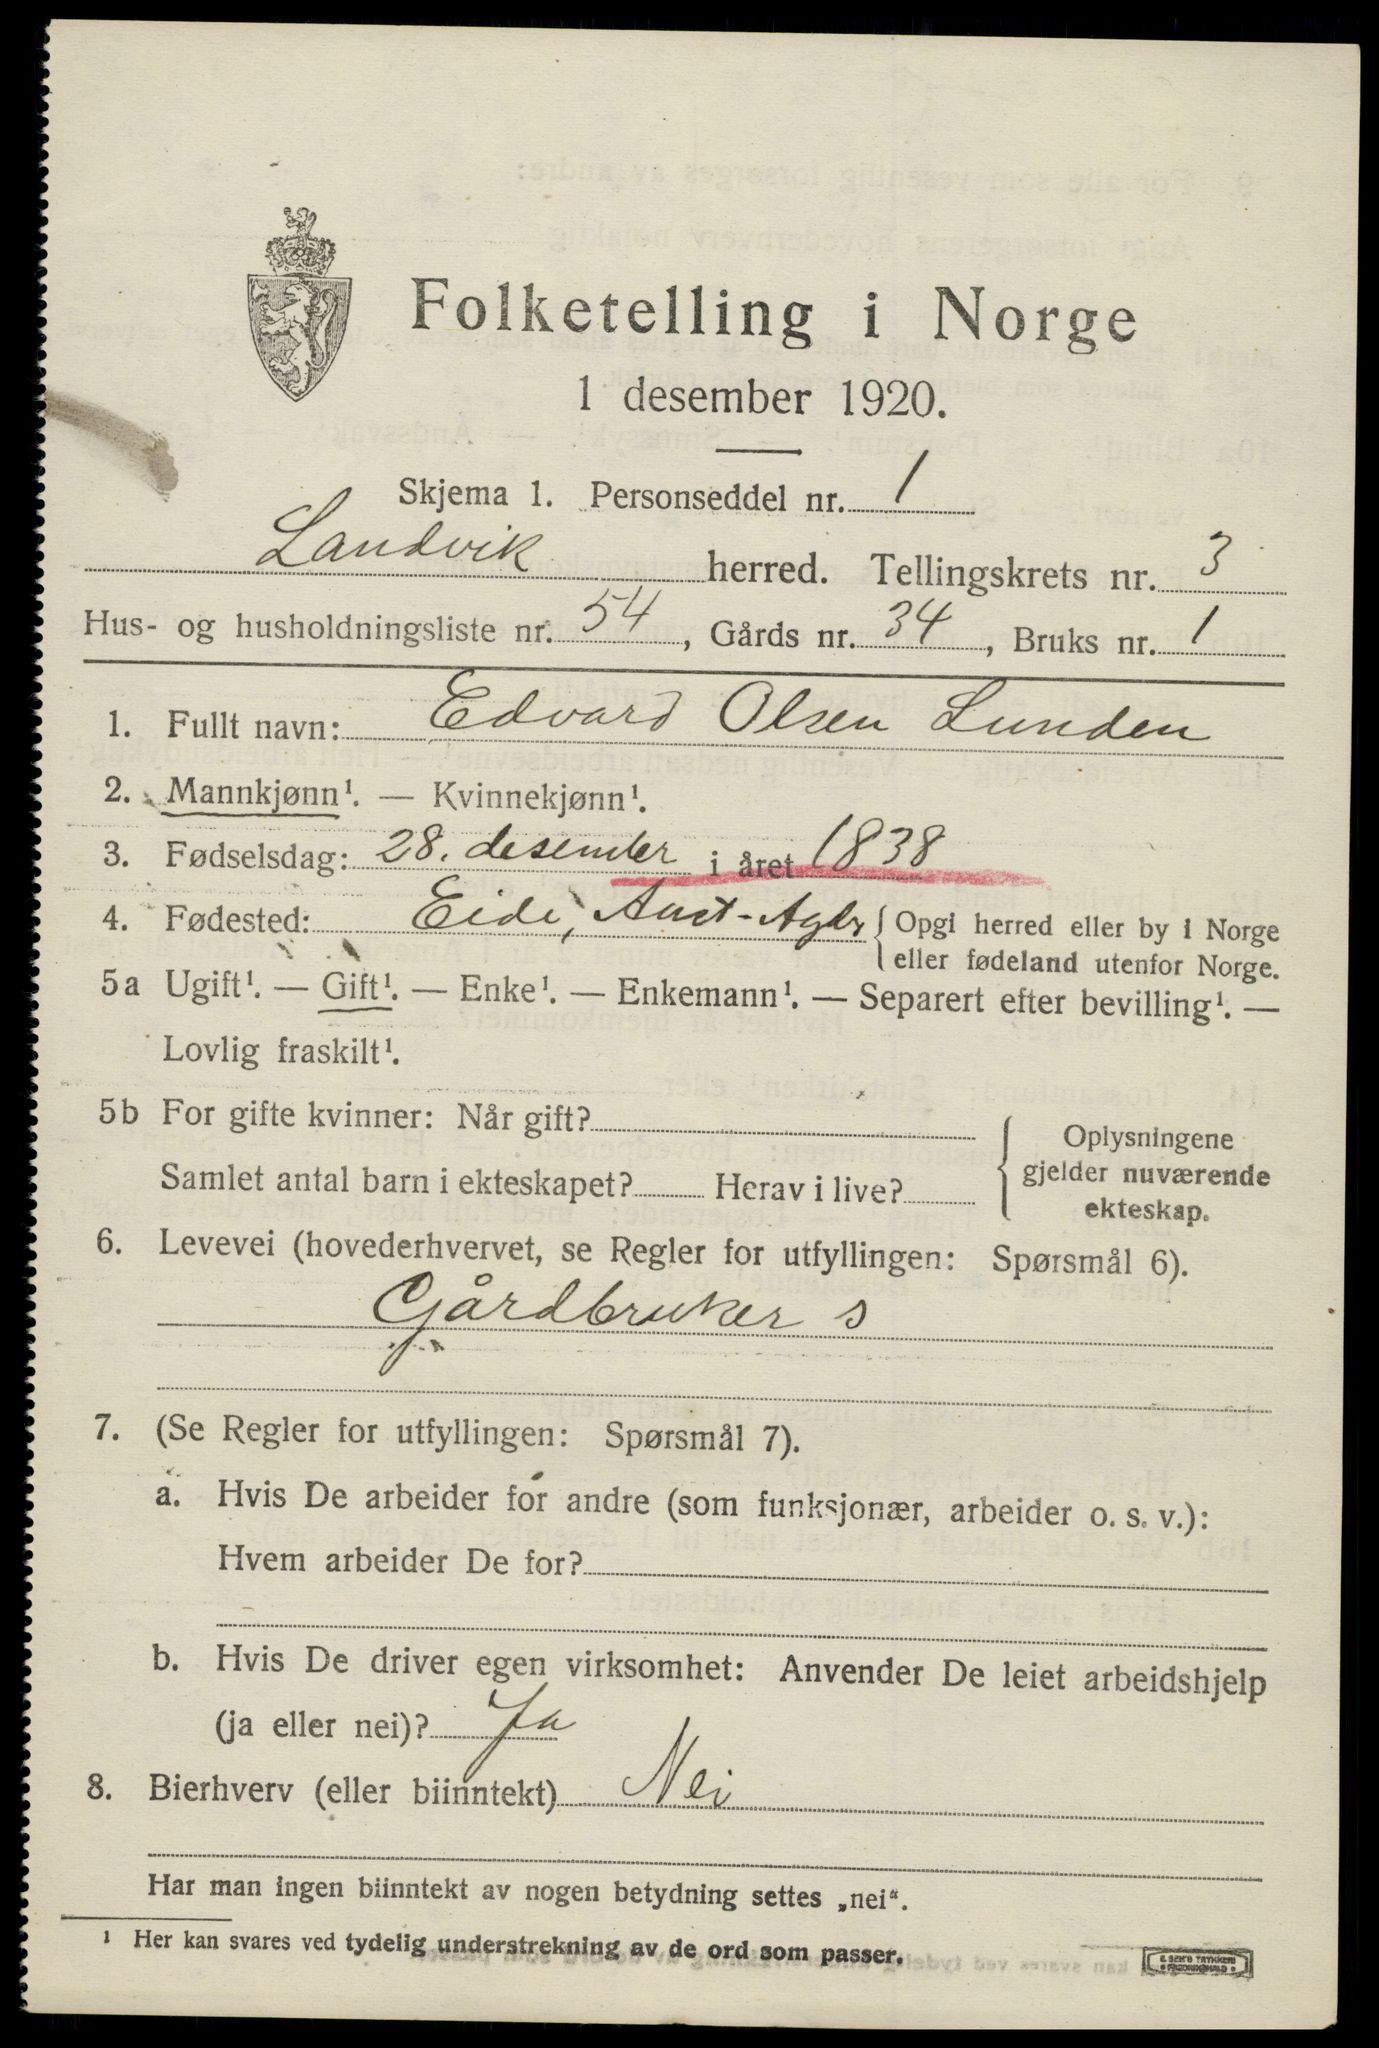 Folketelling i Norge
1 desember 1920.
Skjema 1. Personseddel nr. 1
Landvik herred. Tellingskrets nr. 3
Hus- og husholdningsliste nr. 54, Gårds nr. 34, Bruks nr. 1
1. Fullt navn: Edvard Olsen Lunden
2. Mannkjønn¹. — Kvinnekjønn¹.
3. Fødselsdag: 28. desember i året 1838
4. Fødested: Eide, Aust-Agder { Opgi herred eller by i Norge
eller fødeland utenfor Norge.
5a Ugift¹. — Gift¹. — Enke¹. — Enkemann¹. — Separert efter bevilling¹. —
Lovlig fraskilt¹.
5b For gifte kvinner: Når gift?
Samlet antal barn i ekteskapet? Herav i live?
{ Oplysningene
gjelder nuværende
ekteskap.
6. Levevei (hovederhvervet, se Regler for utfyllingen: Spørsmål 6).
Gårdbruker s
7. (Se Regler for utfyllingen: Spørsmål 7).
a. Hvis De arbeider for andre (som funksjonær, arbeider o. s. v.):
Hvem arbeider De for?
b. Hvis De driver egen virksomhet: Anvender De leiet arbeidshjelp
(ja eller nei)? Ja
8. Bierhverv (eller biinntekt) Nei
Har man ingen biinntekt av nogen betydning settes „nei“.
¹ Her kan svares ved tydelig understrekning av de ord som passer.